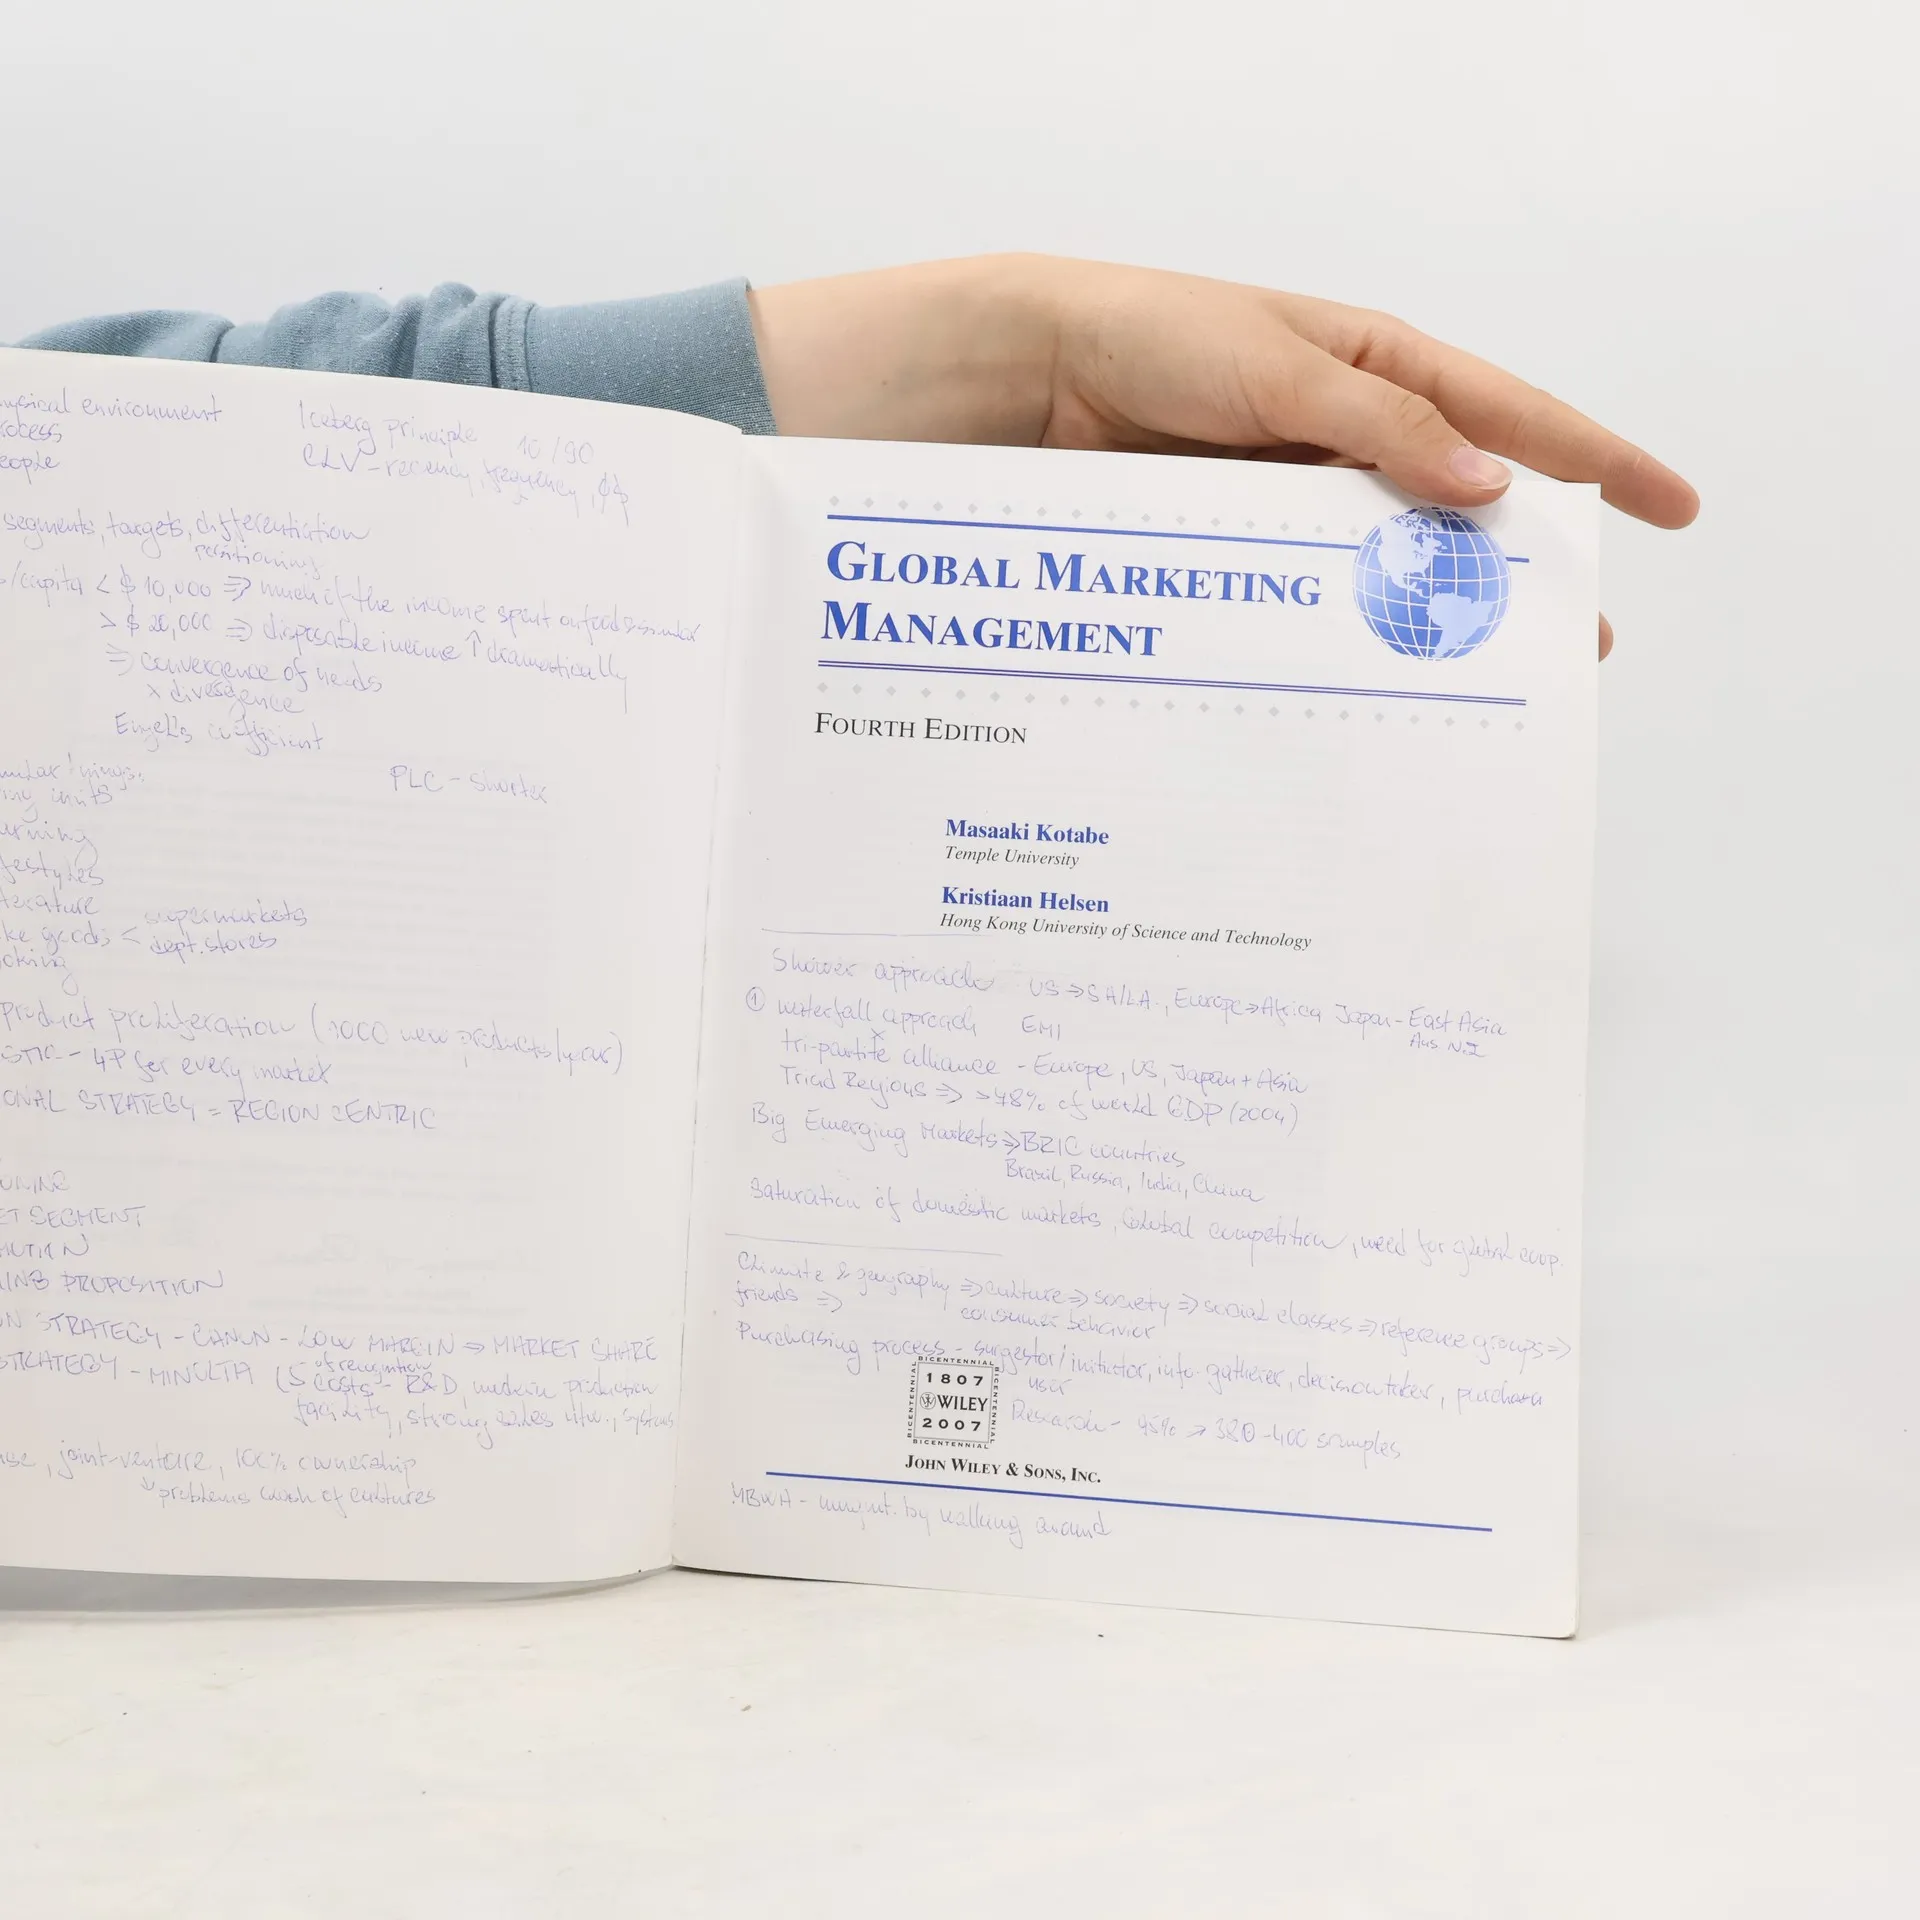 physical environment
process
people
Iceberg principle 10/90
CLV - recency, frequency, $
segments, targets, differentiation
positioning
/capita < $ 10,000 ⇒ much of the income spent on food & similar
> $ 20,000 ⇒ disposable income ↑ dramatically
⇒ convergence of needs
x divergence
Engel's coefficient
PLC - shorter
supermarkets
ke goods < dept. stores
product proliferation (1000 new products/year)
STIC - 4P for every market
ONAL STRATEGY = REGION CENTRIC
ET SEGMENT
PROPOSITION
N STRATEGY - CANON - LOW MARGIN ⇒ MARKET SHARE
STRATEGY - MINOLTA (5
costs - R&D, modern production
facility, strong sales, systems
joint-venture, 100% ownership
problems clash of cultures
GLOBAL MARKETING
MANAGEMENT
FOURTH EDITION
Masaaki Kotabe
Temple University
Kristiaan Helsen
Hong Kong University of Science and Technology
Shower approach US ⇒ SA/LA, Europe ⇒ Africa Japan - East Asia
① waterfall approach EMI
tri-partite alliance - Europe, US, Japan + Asia
Triad Regions ⇒ >48% of world GDP (2004)
Big Emerging Markets ⇒ BRIC countries
Brasil, Russia, India, China
Saturation of domestic markets, Global competition, need for global coop.
Climate & geography ⇒ culture ⇒ society ⇒ social classes ⇒ reference groups ⇒
friends ⇒ consumer behavior
Purchasing process - suggestor/initiator, info. gatherer, decision taker, purchaser
user
Research - 95% → 380-400 samples
BICENTENNIAL
1807
WILEY
2007
BICENTENNIAL
JOHN WILEY & SONS, INC.
MBWA - mngmt. by walking around